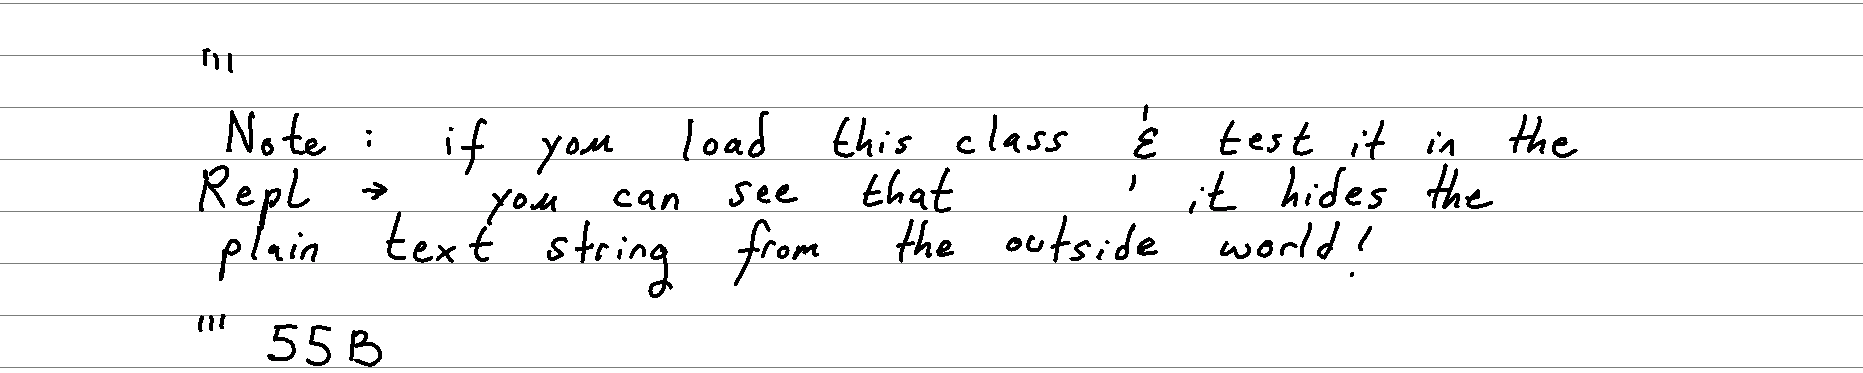 '''
Note : if you load this class & test it in the
Repl → you can see that ' it hides the
plain text string from the outside world!
''' 55B